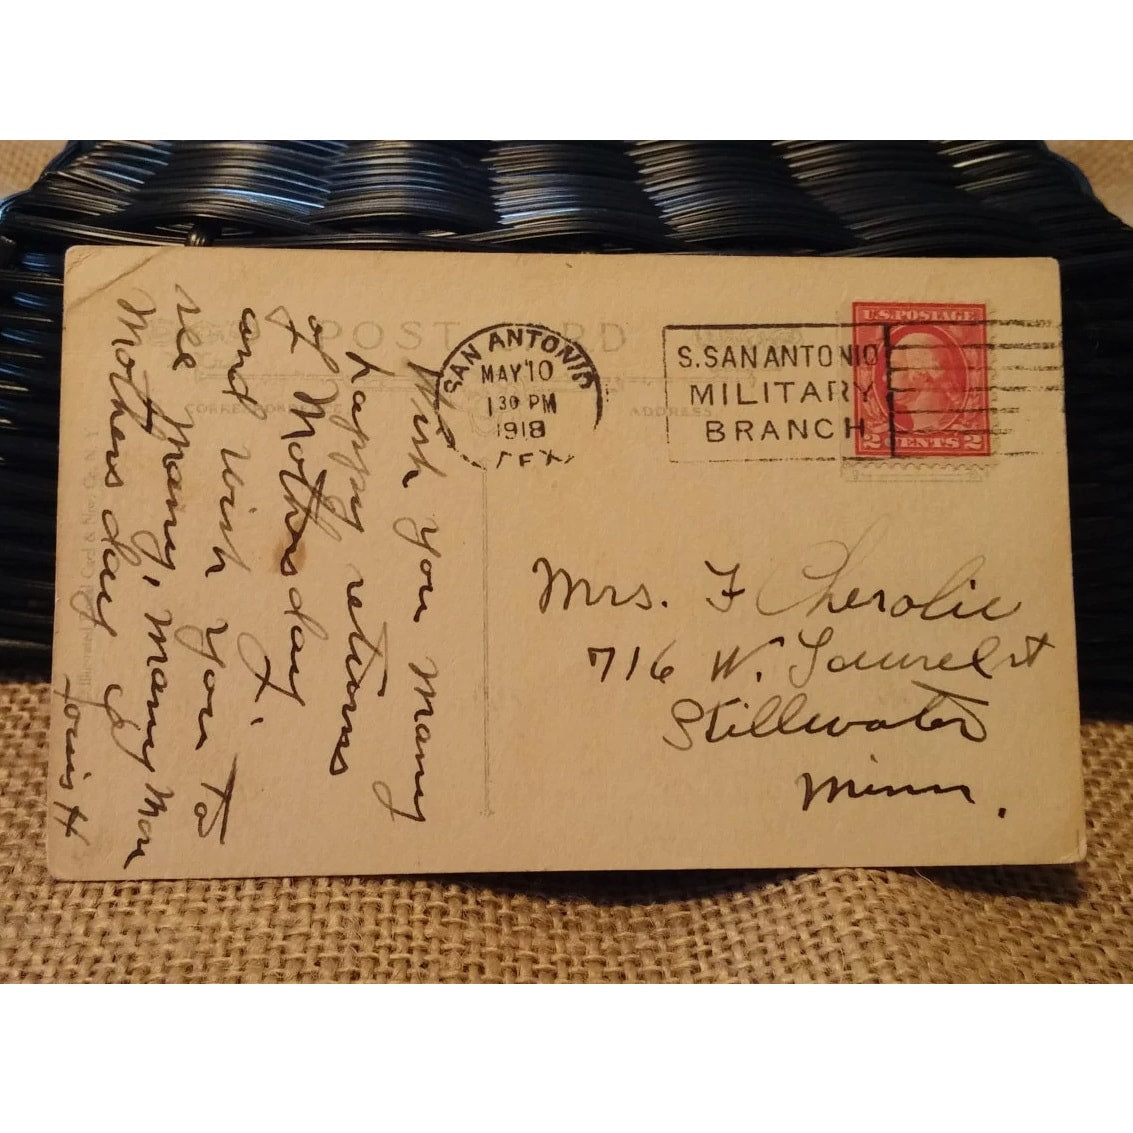 POST CARD
CORRESPONDENCE
ADDRESS
SAN ANTONIO
MAY 10
1 30 PM
1918
TEX
S. SAN ANTONIO
MILITARY
BRANCH
U.S. POSTAGE
2 CENTS 2
Wish you Many
happy returns
of Mothers day.
and wish you to
see Many, Many Mor
Mothers day
Louis H
Mrs. F Cherolie
716 W. Laurel st
Stillwater
Minn.
Illustrated Postal Card & Nov. Co. N.Y.